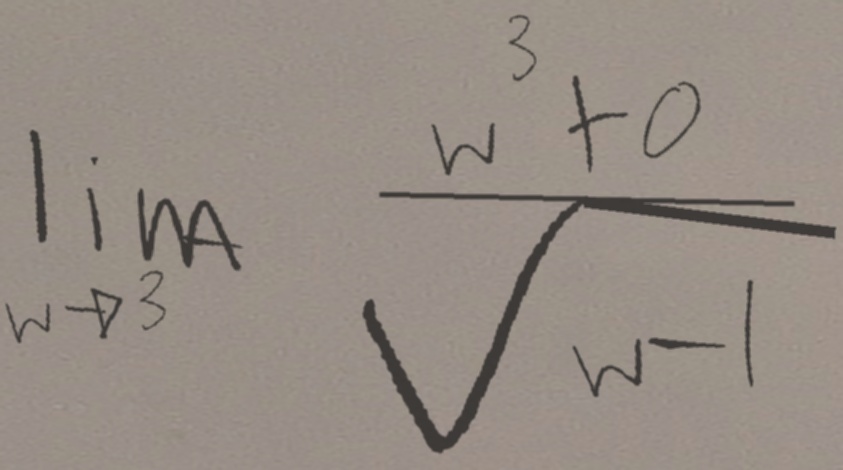 lim w→3 (w^3+0)/√(w-1)